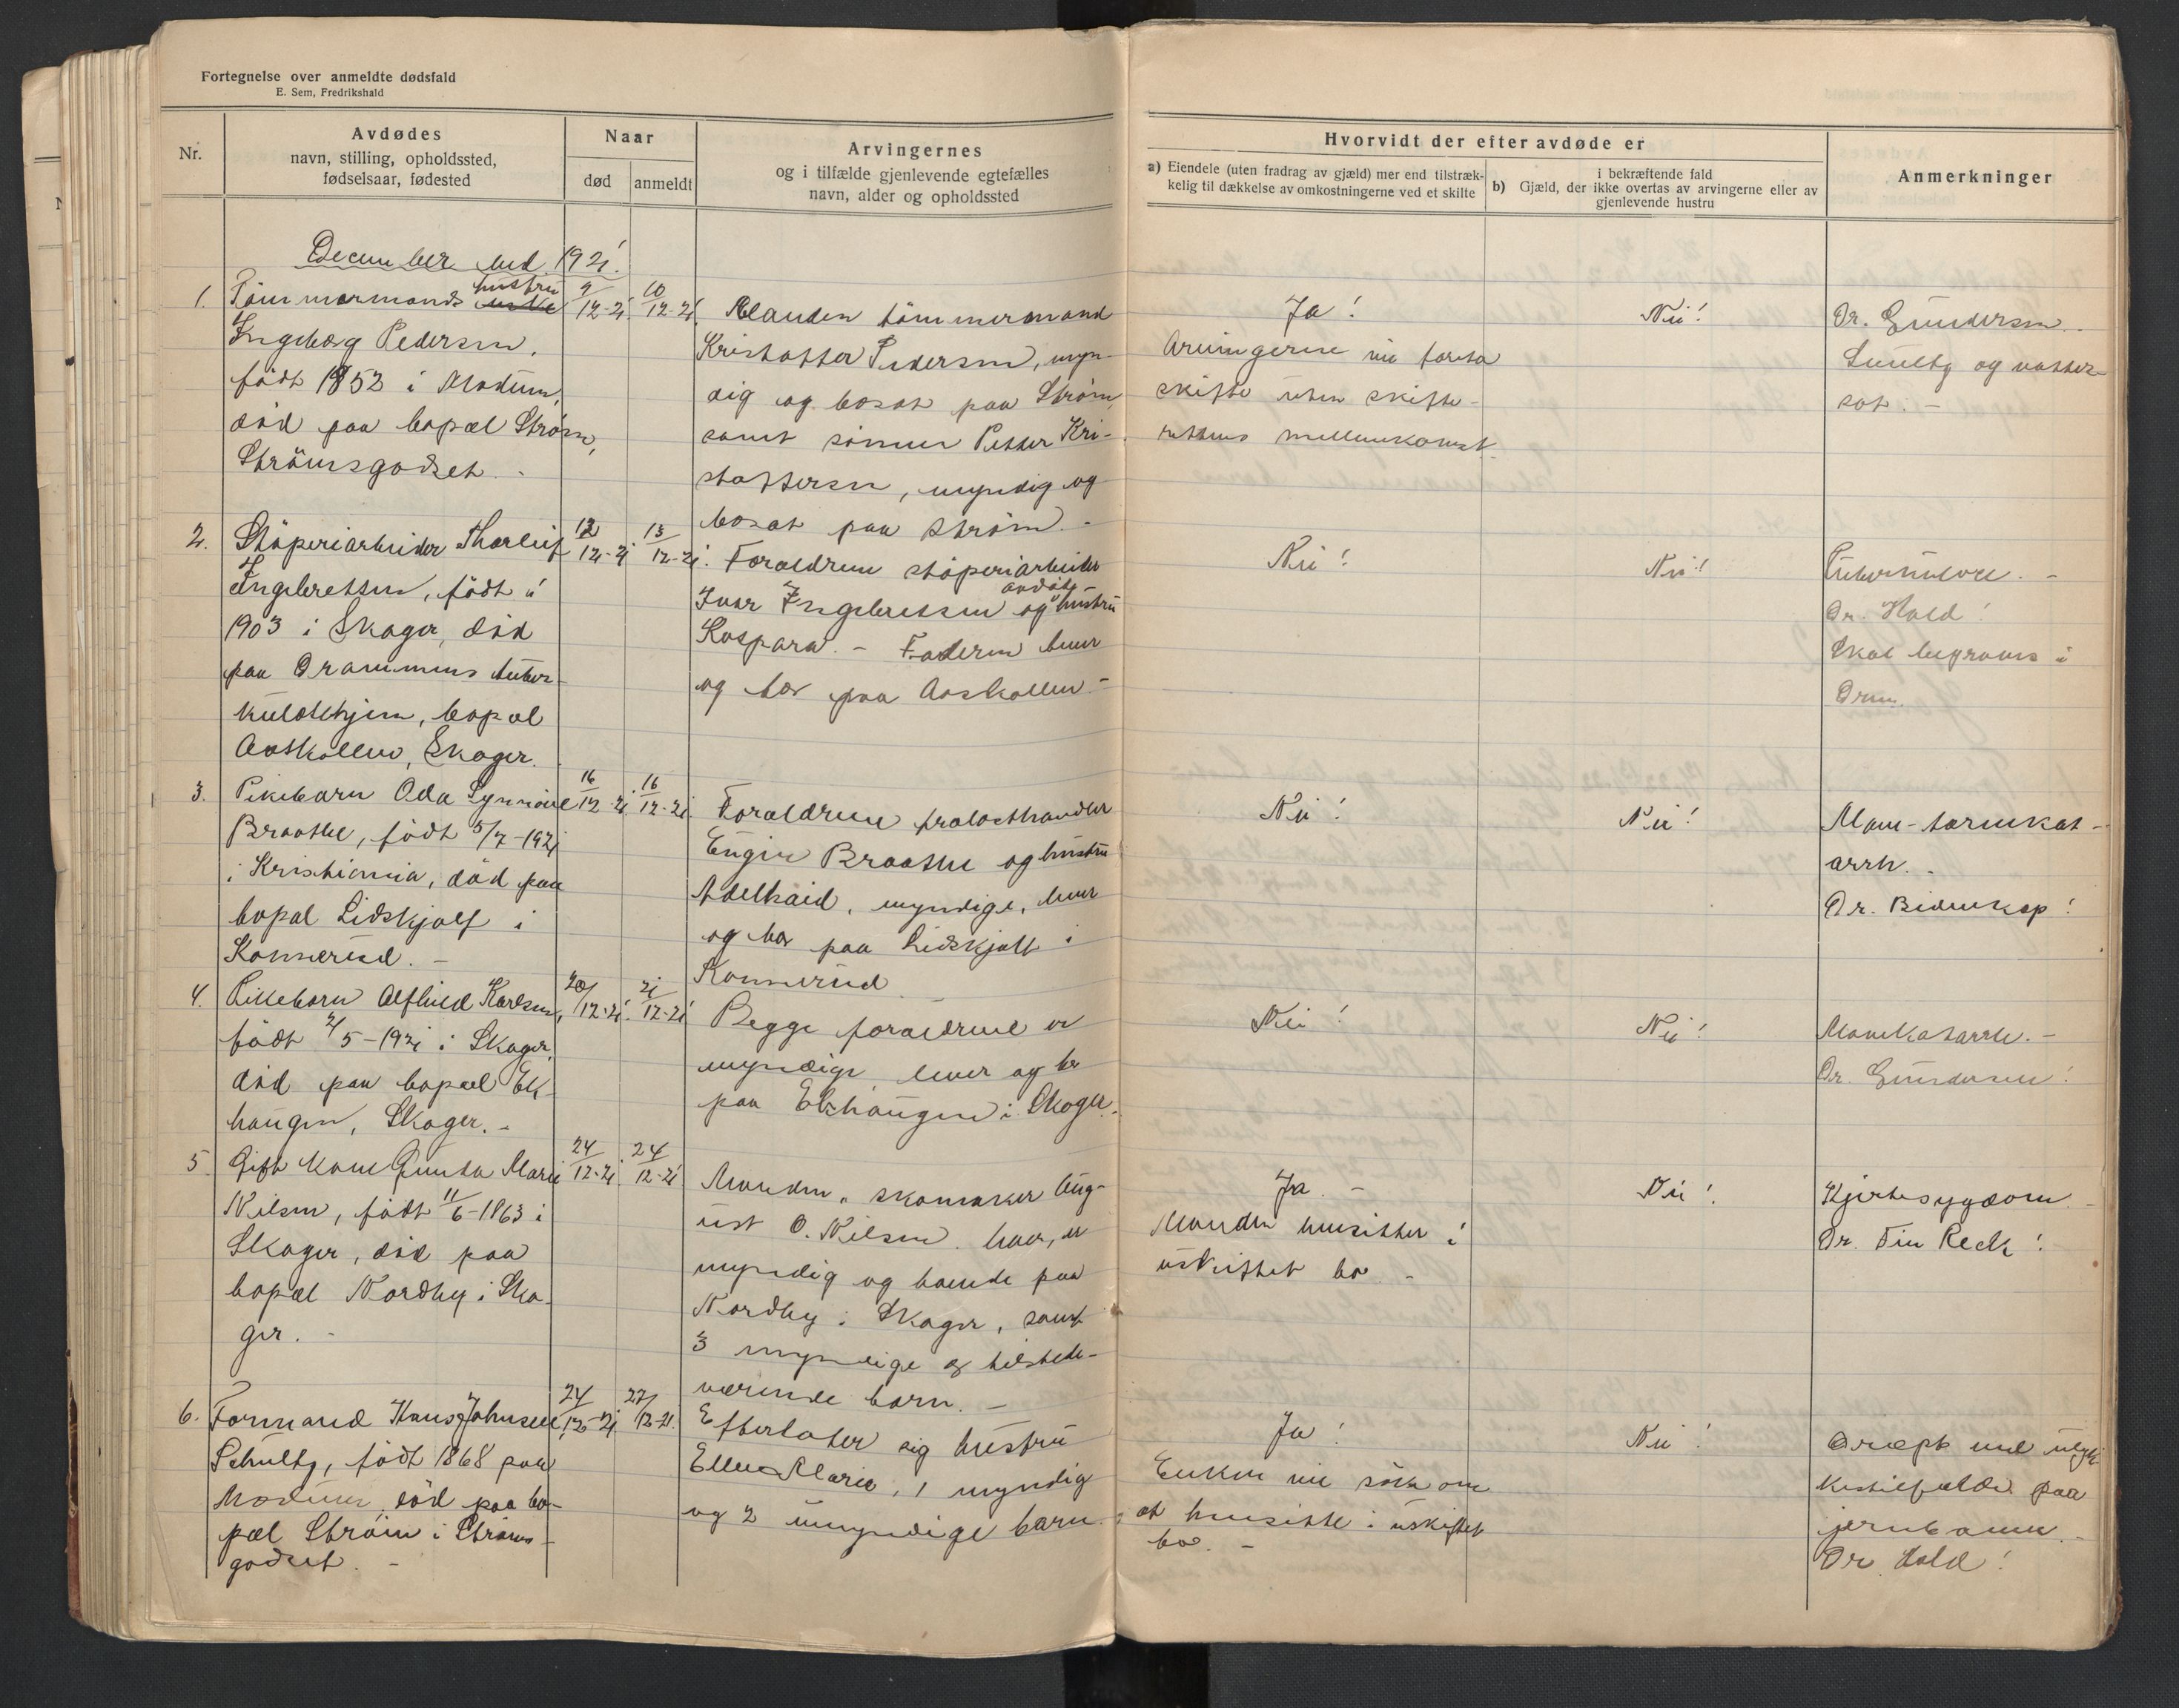 Fortegnelse over anmeldte dødsfald
E. Sem, Fredrikshald
Nr.
Avdødes
navn, stilling, opholdssted,
fødselsaar, fødested
Naar
død
anmeldt
Arvingernes
og i tilfælde gjenlevende egtefælles
navn, alder og opholdssted
Hvorvidt der efter avdøde er
a) Eiendele (uten fradrag av gjæld) mer end tilstræk-
kelig til dækkelse av omkostningerne ved et skilte
i bekræftende fald
b) Gjæld, der ikke overtas av arvingerne eller av
gjenlevende hustru
Anmerkninger
December md. 1921.
1.
hustru
Tømmermands enke
Ingeborg Pedersen,
født 1852 i Modum,
død paa bopæl Strøm,
Strømsgodset. -
9/12-21.
10/12-21.
Manden tømmermand
Kristoffer Pedersen, myn-
dig og bosat paa Strøm,
samt sønnen Petter Kri-
stoffersen, myndig og
bosat paa Strøm. -
Ja!
Arvingerne vil foreta
skifte uten skifte-
rettens mellemkomst.
Nei!
Dr. Gundersen.
Senilty og vatter-
sot. -
2.
Støperiarbeider Thorleif
Ingebretsen, født i
1903 i Skoger, død
paa Drammens tuber-
kuløsehjem, bopæl
Aaskollen, Skoger.
12/12-21
13/12-21.
Forældrene støperiarbeider
avdøde
Ivar Ingebretsen og hustru
Kaspara. - Faderen lever
og bor paa Aaskollen. -
Nei!
Nei!
Tuberkulose. -
Dr. Hald!
Skal begraves i
Drm.
3.
Pikebarn Oda Synnøve
Braathe, født 5/7-1921
i Kristiania, død paa
bopæl Lidskjalf i
Konnerud. -
16/12-21.
16/12-21.
Forældrene
Braathe og hustru
Adelhaid, myndige, lever
og bor paa Lidskjalf i
Konnerud
Nei!
Nei!
Mave-tarmkat-
arrh. -
Dr. Bidenkap!
4.
Pikebarn Alfhild Karlsen,
født 2/5-1921 i Skoger,
død paa bopæl Ek-
haugen, Skoger. -
20/12-21.
21/12-21
Begge forældrene er
myndige, lever og bor
paa Ekhaugen i Skoger.
Nei!
Nei!
Mavekatarrh. -
Dr. Gundersen!
5.
Gift kone Gunda Marie
Nilsen, født 11/6-1863 i
Skoger, død paa
bopæl Nordby i Sko-
ger. -
24/12-21.
24/12-21
Manden, skomaker Aug-
ust O. Nilsen lever, er
myndig og boende paa
Nordby i Skoger, samt
3 myndige og tilstede-
værende barn. -
Ja. -
Manden hensitter i
uskiftet bo. -
Nei!
Hjertesygdom. -
Dr. Fin Reck!
6.
Formand Hans Johnsen
Schultz, født 1868 paa
Modum, død paa bo-
pæl Strøm i Strøms-
godset. -
24/12-21
27/12-21.
Efterlater sig hustru
Ellen Marie, 1 myndig
og 2 umyndige barn.
Ja!
Enken vil søke om
at hensitte i uskiftet
bo. -
Nei!
Dræpt ved ulyk-
kestilfælde paa
jernbanen. -
Dr. Hald!